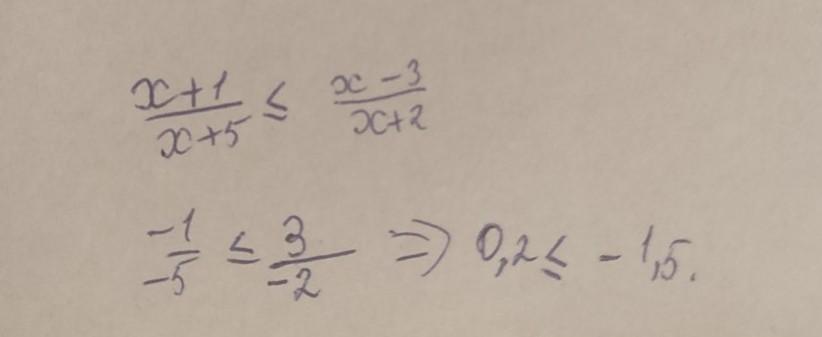 (x+1)/(x+5) ≤ (x-3)/(x+2)
(-1)/(-5) ≤ 3/(-2) ⇒ 0,2 ≤ -1,5.